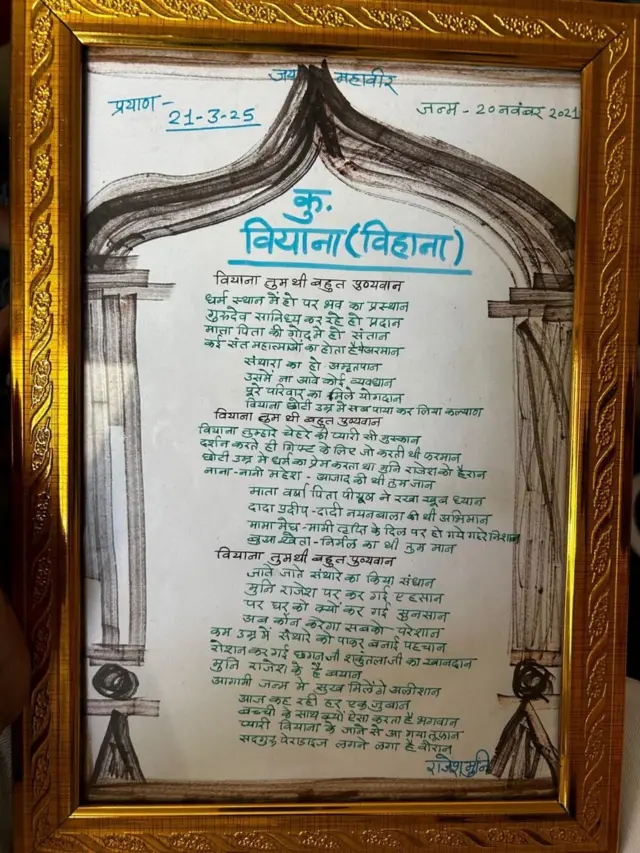 जय महावीर
प्रयाण - 21-3-25
जन्म - 20 नवंबर 2021
कु.
वियाना (विहाना)
वियाना तुम थी बहुत पुण्यवान
धर्म स्थान में हो पर भव का प्रस्थान
गुरुदेव सानिध्य कर रहे हो प्रदान
माता पिता की गोद मे हो संतान
कई संत महात्माओं का होता है अरमान
संथारा का हो अमृतपान
उसमें ना आवे कोई व्यवधान
पूरे परिवार का मिले योगदान
वियाना छोटी उम्र में सब पाया कर लिया कल्याण
वियाना तुम थी बहुत पुण्यवान
वियाना तुम्हारे चेहरे की प्यारी सी मुस्कान
दर्शन करते ही गिफ्ट के लिए जो करती थी फरमान
छोटी उम्र मे धर्म का प्रेम करता था मुनि राजेश को हैरान
नाना-नानी महेश - आजाद की थी तुम जान
माता वर्षा पिता पीयूष ने रखा खूब ध्यान
दादा प्रदीप-दादी नयनबाला की थी अभिमान
मामा मेघ-मामी तृप्ति के दिल पर हो गये गहरे निशान
श्वेता-निर्मल का थी तुम मान
वियाना तुम थी बहुत पुण्यवान
जाते जाते संथारे का किया संधान
मुनि राजेश पर कर गई एहसान
पर घर को क्यों कर गई सुनसान
अब कौन करेगा सबको परेशान
कम उम्र में संथारे को पाकर बनाई पहचान
रोशन कर गई छगनजी शकुंतलाजी का खानदान
मुनि राजेश के है बयान
आगामी जन्म मे सुख मिलेंगे अलीशान
आज कह रही हर एक जुबान
बच्चों के साथ क्यों ऐसा करता है भगवान
प्यारी वियाना के जाने से आ गया तूफान
लगने लगा है वीरान
राजेश मुनि